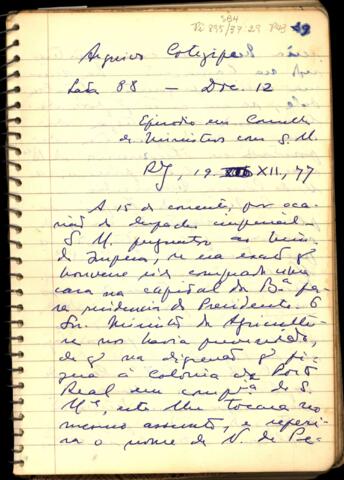 SBH
Pi 895/37:29 P43 49
Arquivo Cotegipe
Lata 88 — Doc. 12
Episodio em Conselho
de Ministros com S. M.
RJ, 19. XII, 77
A 15 do corrente, por oca-
sião do despacho imperial
S. M. perguntou ao Minº
do Imperio, se era exacto q
houvesse sido comprada uma
casa na capital da Bª pa-
ra residencia do Presidente. O
Sr. Ministro da Agricultu-
ra nos havia prevenido,
de q na digressão q fi-
zera à Colonia de Porto
Real em compª de S.
Mᵉ, este lhe tocara no
mesmo assunto, e referi-
ra o nome do V. de Pe-